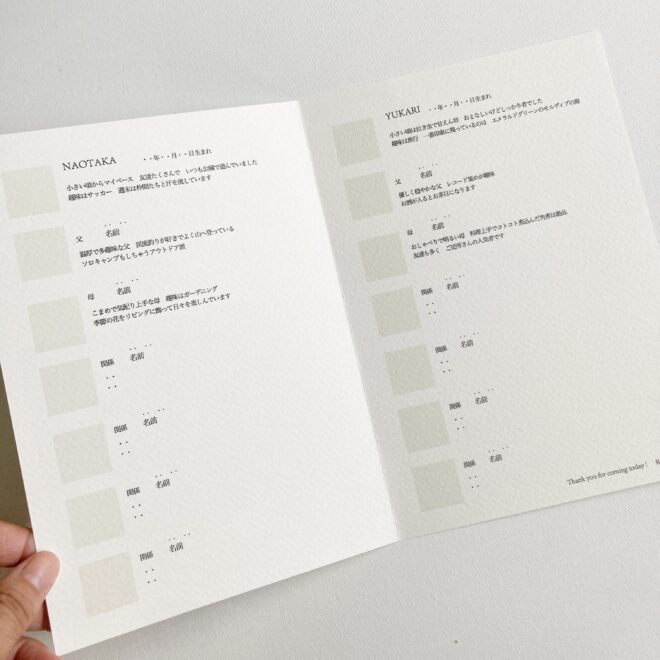 NAOTAKA ・・年・・月・・日生まれ
小さい頃からマイペース 友達たくさんで いつも公園で遊んでいました
趣味はサッカー 週末は仲間たちと汗を流しています
・・ ・・
父 名前
温厚で多趣味な父 渓流釣りが好きでよく山へ登っている
ソロキャンプもしちゃうアウトドア派
・・ ・・
母 名前
こまめで気配り上手な母 趣味はガーデニング
季節の花をリビングに飾って日々を楽しんでいます
・・ ・・
関係 名前
・・
・・
・・ ・・
関係 名前
・・
・・
・・ ・・
関係 名前
・・
・・
・・ ・・
関係 名前
・・
・・
YUKARI ・・年・・月・・日生まれ
小さい頃は泣き虫で甘えん坊 おとなしいけどしっかり者でした
趣味は旅行 一番印象に残っているのは エメラルドグリーンのモルディブの海
・・ ・・
父 名前
優しく穏やかな父 レコード集めが趣味
お酒が入るとお茶目になります
・・ ・・
母 名前
おしゃべりで明るい母 料理上手でコトコト煮込んだ角煮は絶品
友達も多く ご近所さんの人気者です
・・ ・・
関係 名前
・・
・・
・・ ・・
関係 名前
・・
・・
・・ ・・
関係 名前
・・
・・
・・ ・・
関係 名前
・・
・・
Thank you for coming today !